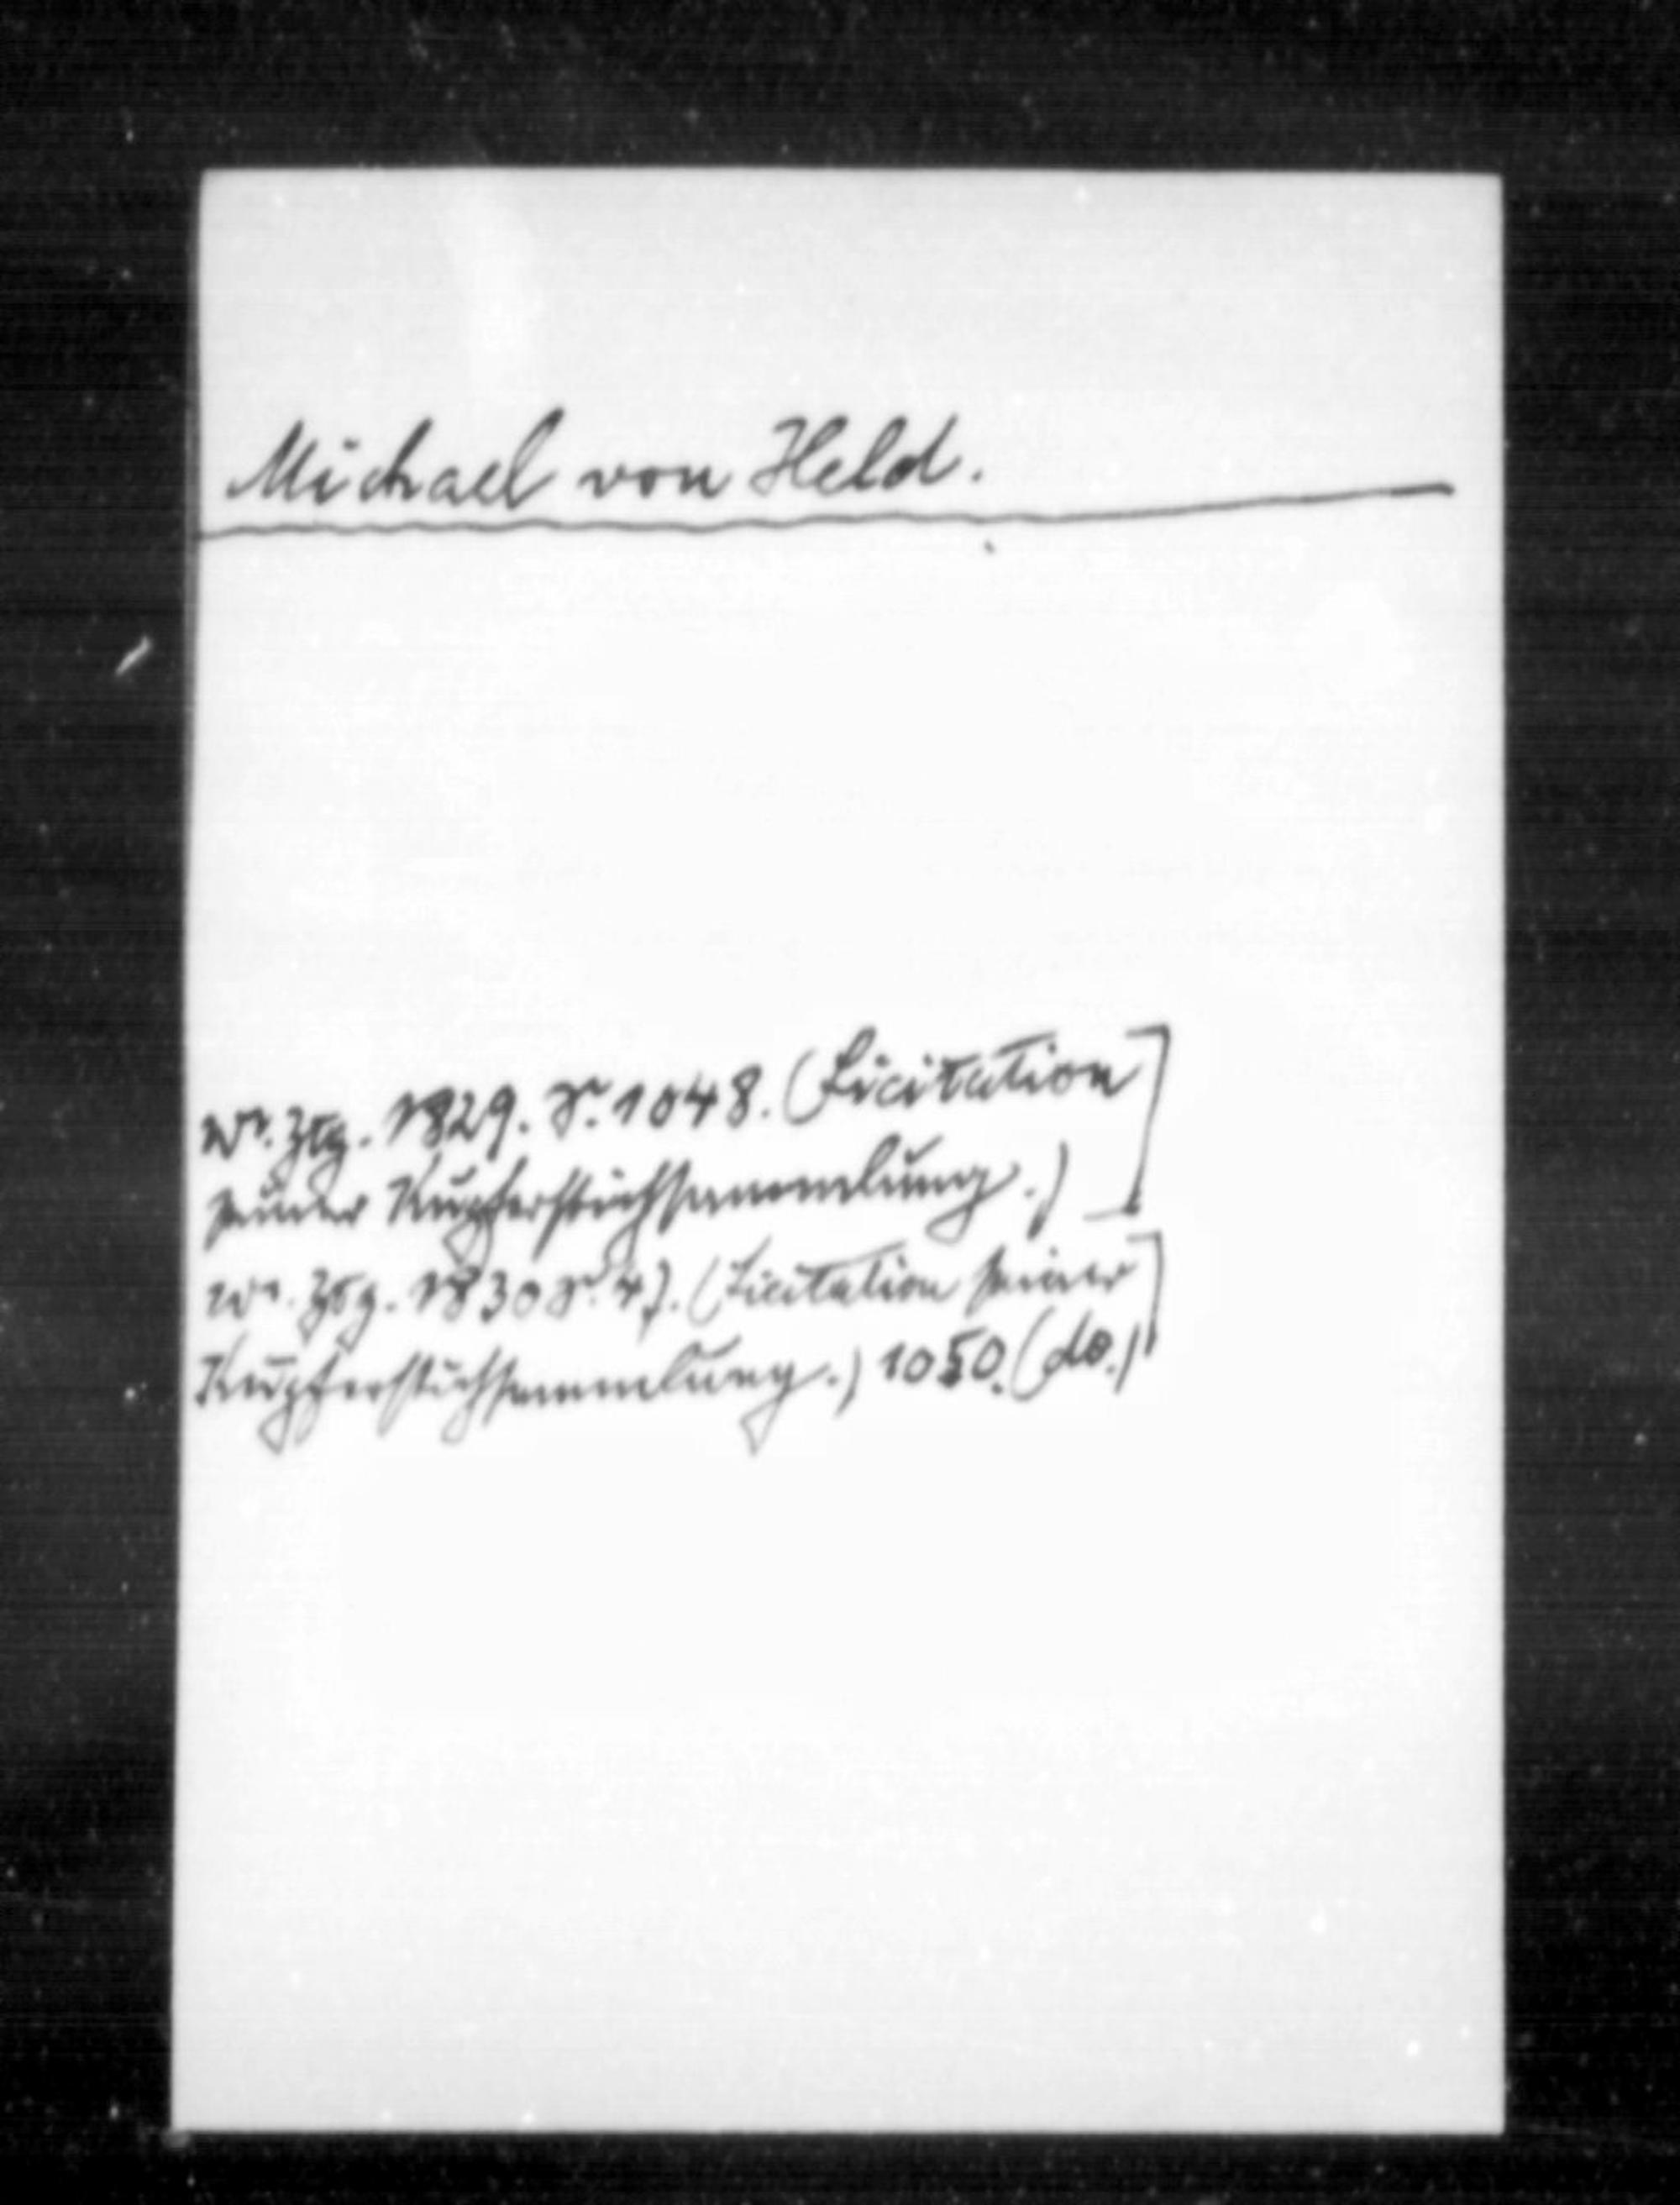 Michael von Held.
Wr. Ztg. 1829. S. 1048. (Licitation
seiner Kupferstichsammlung.)]
Wr. Ztg. 1830 S. 47. (Licitation seiner
Kupferstichsammlung.) 1050. (do.)]